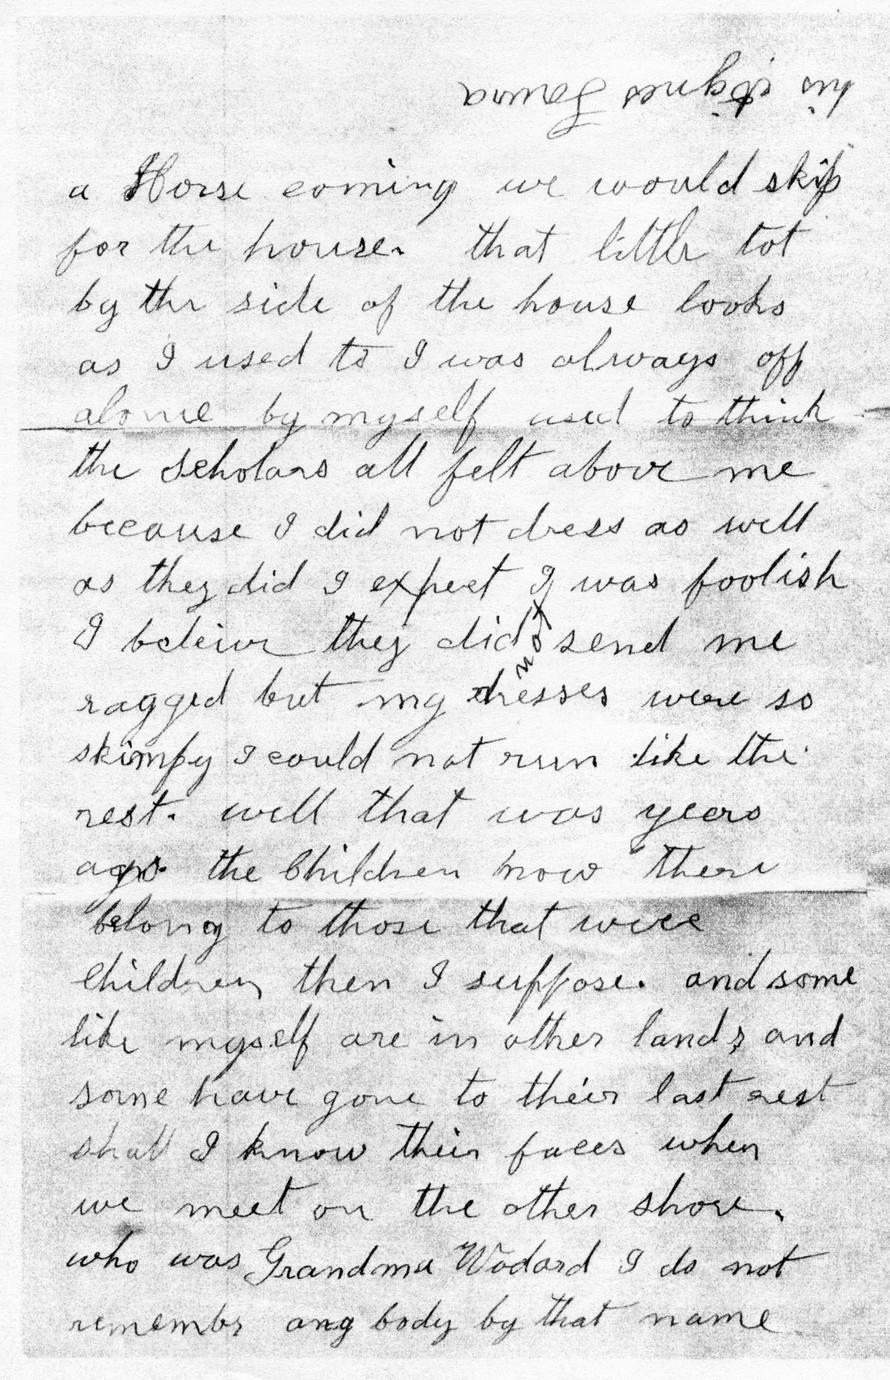 a Horse coming we would skip
for the house. that little tot
by the side of the house looks
as I used to I was always off
alone by myself used to think
the Scholars all felt above me
because I did not dress as well
as they did I expect I was foolish
I beleive they did not send me
ragged but my dresses were so
skimpy I could not run like the
rest. well that was years
ago. the Children now there
belong to those that were
Children then I suppose. and some
like myself are in other lands and
some have gone to their last rest
shall I know their faces when
we meet on the other shore.
who was Grandma Wodard I do not
remembr any body by that name